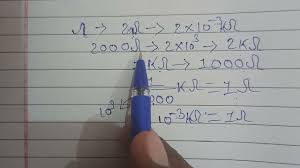 Ω → 2Ω → 2×10⁻³KΩ
2000Ω → 2×10³ → 2KΩ
1KΩ → 1000Ω
1/1000 KΩ = 1Ω
10⁻³KΩ = 1Ω